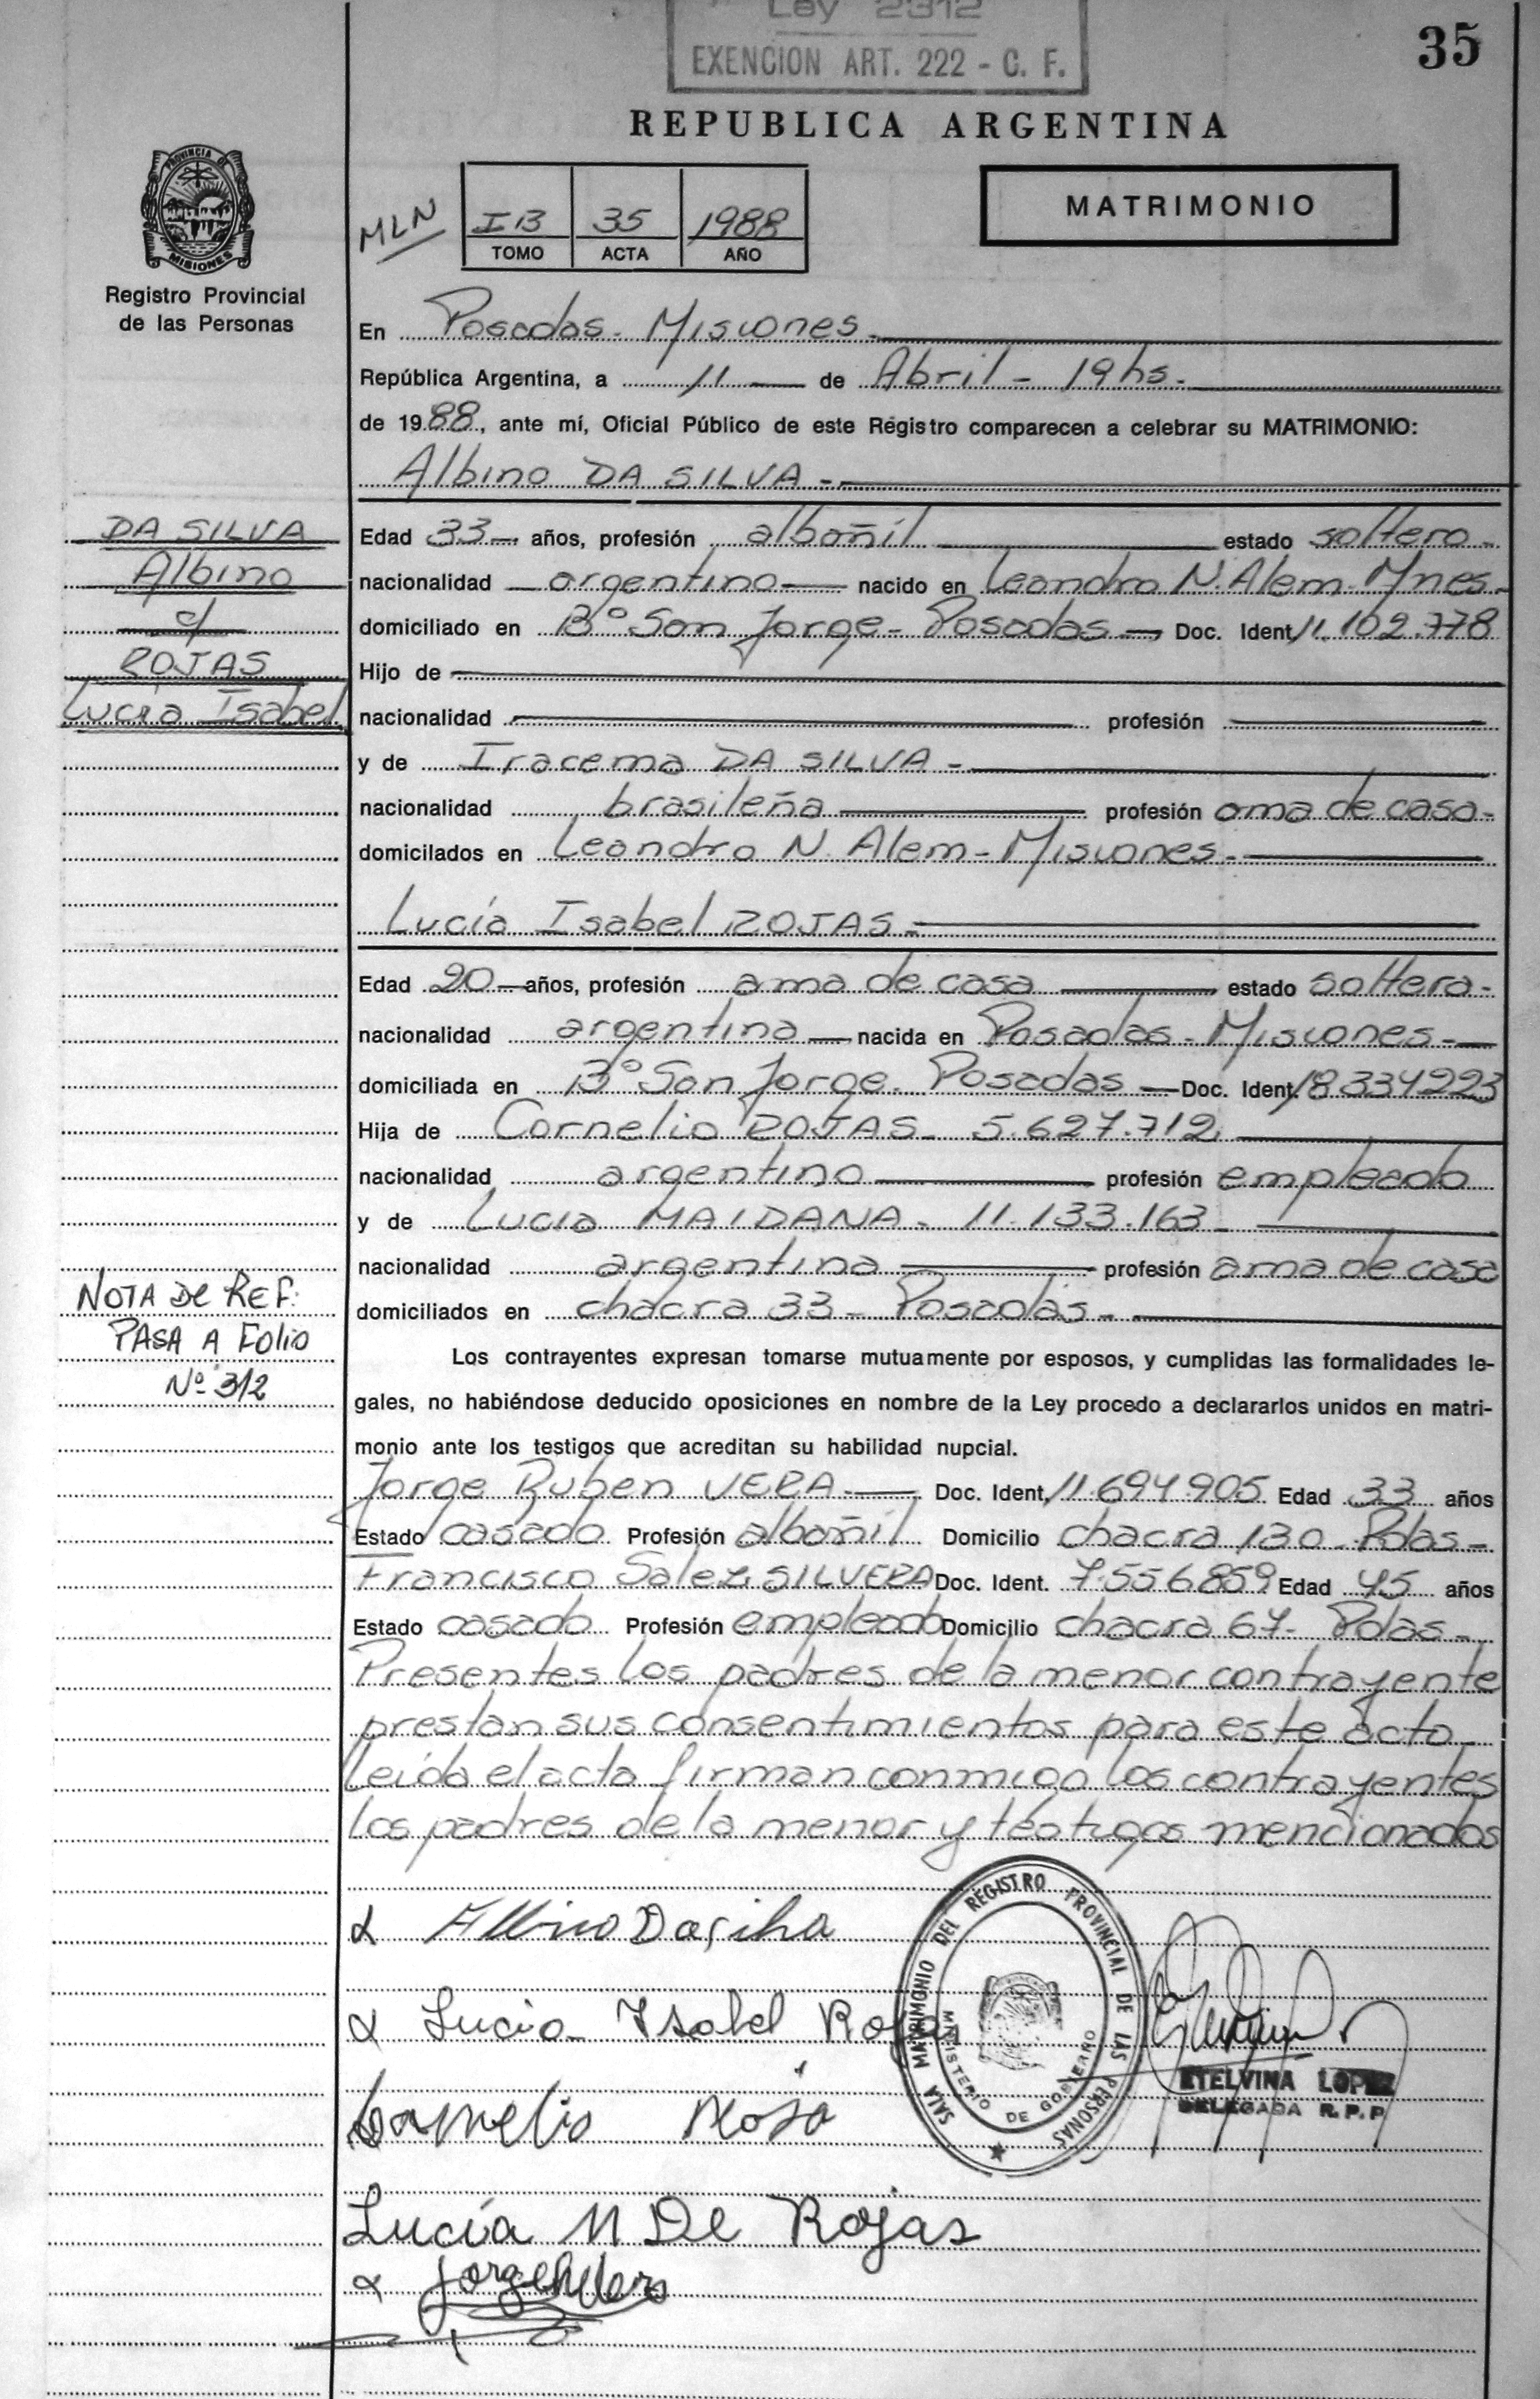 Ley 2312
EXENCION ART. 222 - C. F.
35
REPUBLICA ARGENTINA
PROVINCIA DE
MISIONES
Registro Provincial
de las Personas
MLN
I B 35 1988
TOMO ACTA AÑO
MATRIMONIO
En Posadas - Misiones -
República Argentina, a 11 de Abril - 19 hs. -
de 1988, ante mí, Oficial Público de este Registro comparecen a celebrar su MATRIMONIO:
Albino DA SILVA -
DA SILVA
Albino
c/
ROJAS
Lucía Isabel
Edad 33 - años, profesión albañil estado soltero -
nacionalidad argentino nacido en Leandro N. Alem - Mnes -
domiciliado en Bº San Jorge - Posadas - Doc. Ident. 11.102.778
Hijo de
nacionalidad profesión
y de Iracema DA SILVA -
nacionalidad brasileña profesión ama de casa -
domicilados en Leandro N. Alem - Misiones -
Lucía Isabel ROJAS -
Edad 20 - años, profesión ama de casa estado soltera -
nacionalidad argentina nacida en Posadas - Misiones -
domiciliada en Bº San Jorge - Posadas - Doc. Ident. 18334223
Hija de Cornelio ROJAS - 5.627.712
nacionalidad argentino profesión empleado
y de Lucia MAIDANA - 11.133.163 -
nacionalidad argentina profesión ama de casa
domiciliados en chacra 33 - Posadas -
NOTA DE REF:
PASA A FOLIO
Nº 312
Los contrayentes expresan tomarse mutuamente por esposos, y cumplidas las formalidades le-
gales, no habiéndose deducido oposiciones en nombre de la Ley procedo a declararlos unidos en matri-
monio ante los testigos que acreditan su habilidad nupcial.
Jorge Ruben VERA - Doc. Ident. 11.694.905 Edad 33 años
Estado casado Profesión albañil Domicilio chacra 130 - Pdas -
Francisco Salez SILVERA Doc. Ident. 7.556859 Edad 45 años
Estado casado Profesión empleado Domicilio chacra 67 - Pdas -
Presentes los padres de la menor contrayente
prestan sus consentimientos para este acto -
Leída el acta firman conmigo los contrayentes
los padres de la menor y testigos mencionados
Albino Da silva
Lucia Isabel Rojas
Cornelio Roja
Lucía M De Rojas
Jorge R Vera
SALA MATRIMONIO DEL REGISTRO PROVINCIAL DE LAS PERSONAS
MINISTERIO DE GOBIERNO
ETELVINA LOPEZ
DELEGADA R.P.P